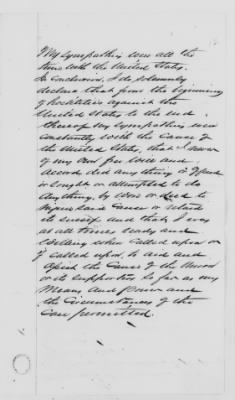 My sympathies were all the
time with the United States.
In conclusion, I do solemnly
declare that from the beginning
of hostilities against the
United States to the end
thereof my sympathies were
constantly with the Cause of
the United States, that I never
of my own free will and
accord did any thing or offered
or sought or attempted to do
anything, by word or deed to
injure said Cause or retard
its success and that I was
at all times ready and
Willing when called upon or
if called upon, to aid and
assist the Cause of the Union
or its supporters so far as my
Means and power and
the Circumstances of the
Case permitted.